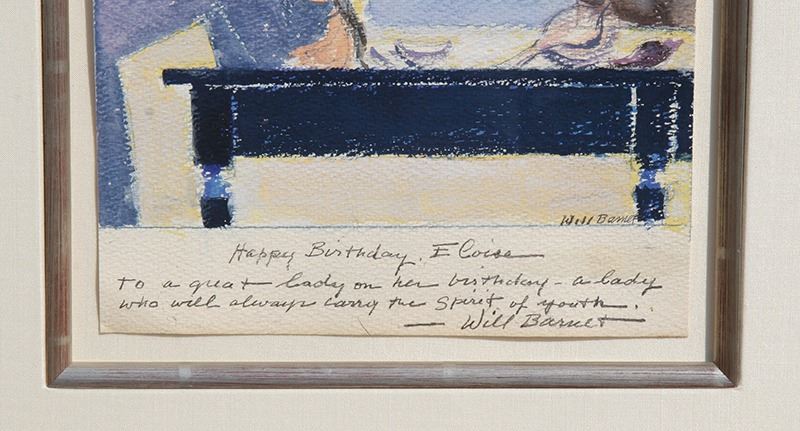 Will Barnet
Happy Birthday, Eloise
To a great lady on her birthday - a lady
who will always carry the Spirit of youth.
— Will Barnet